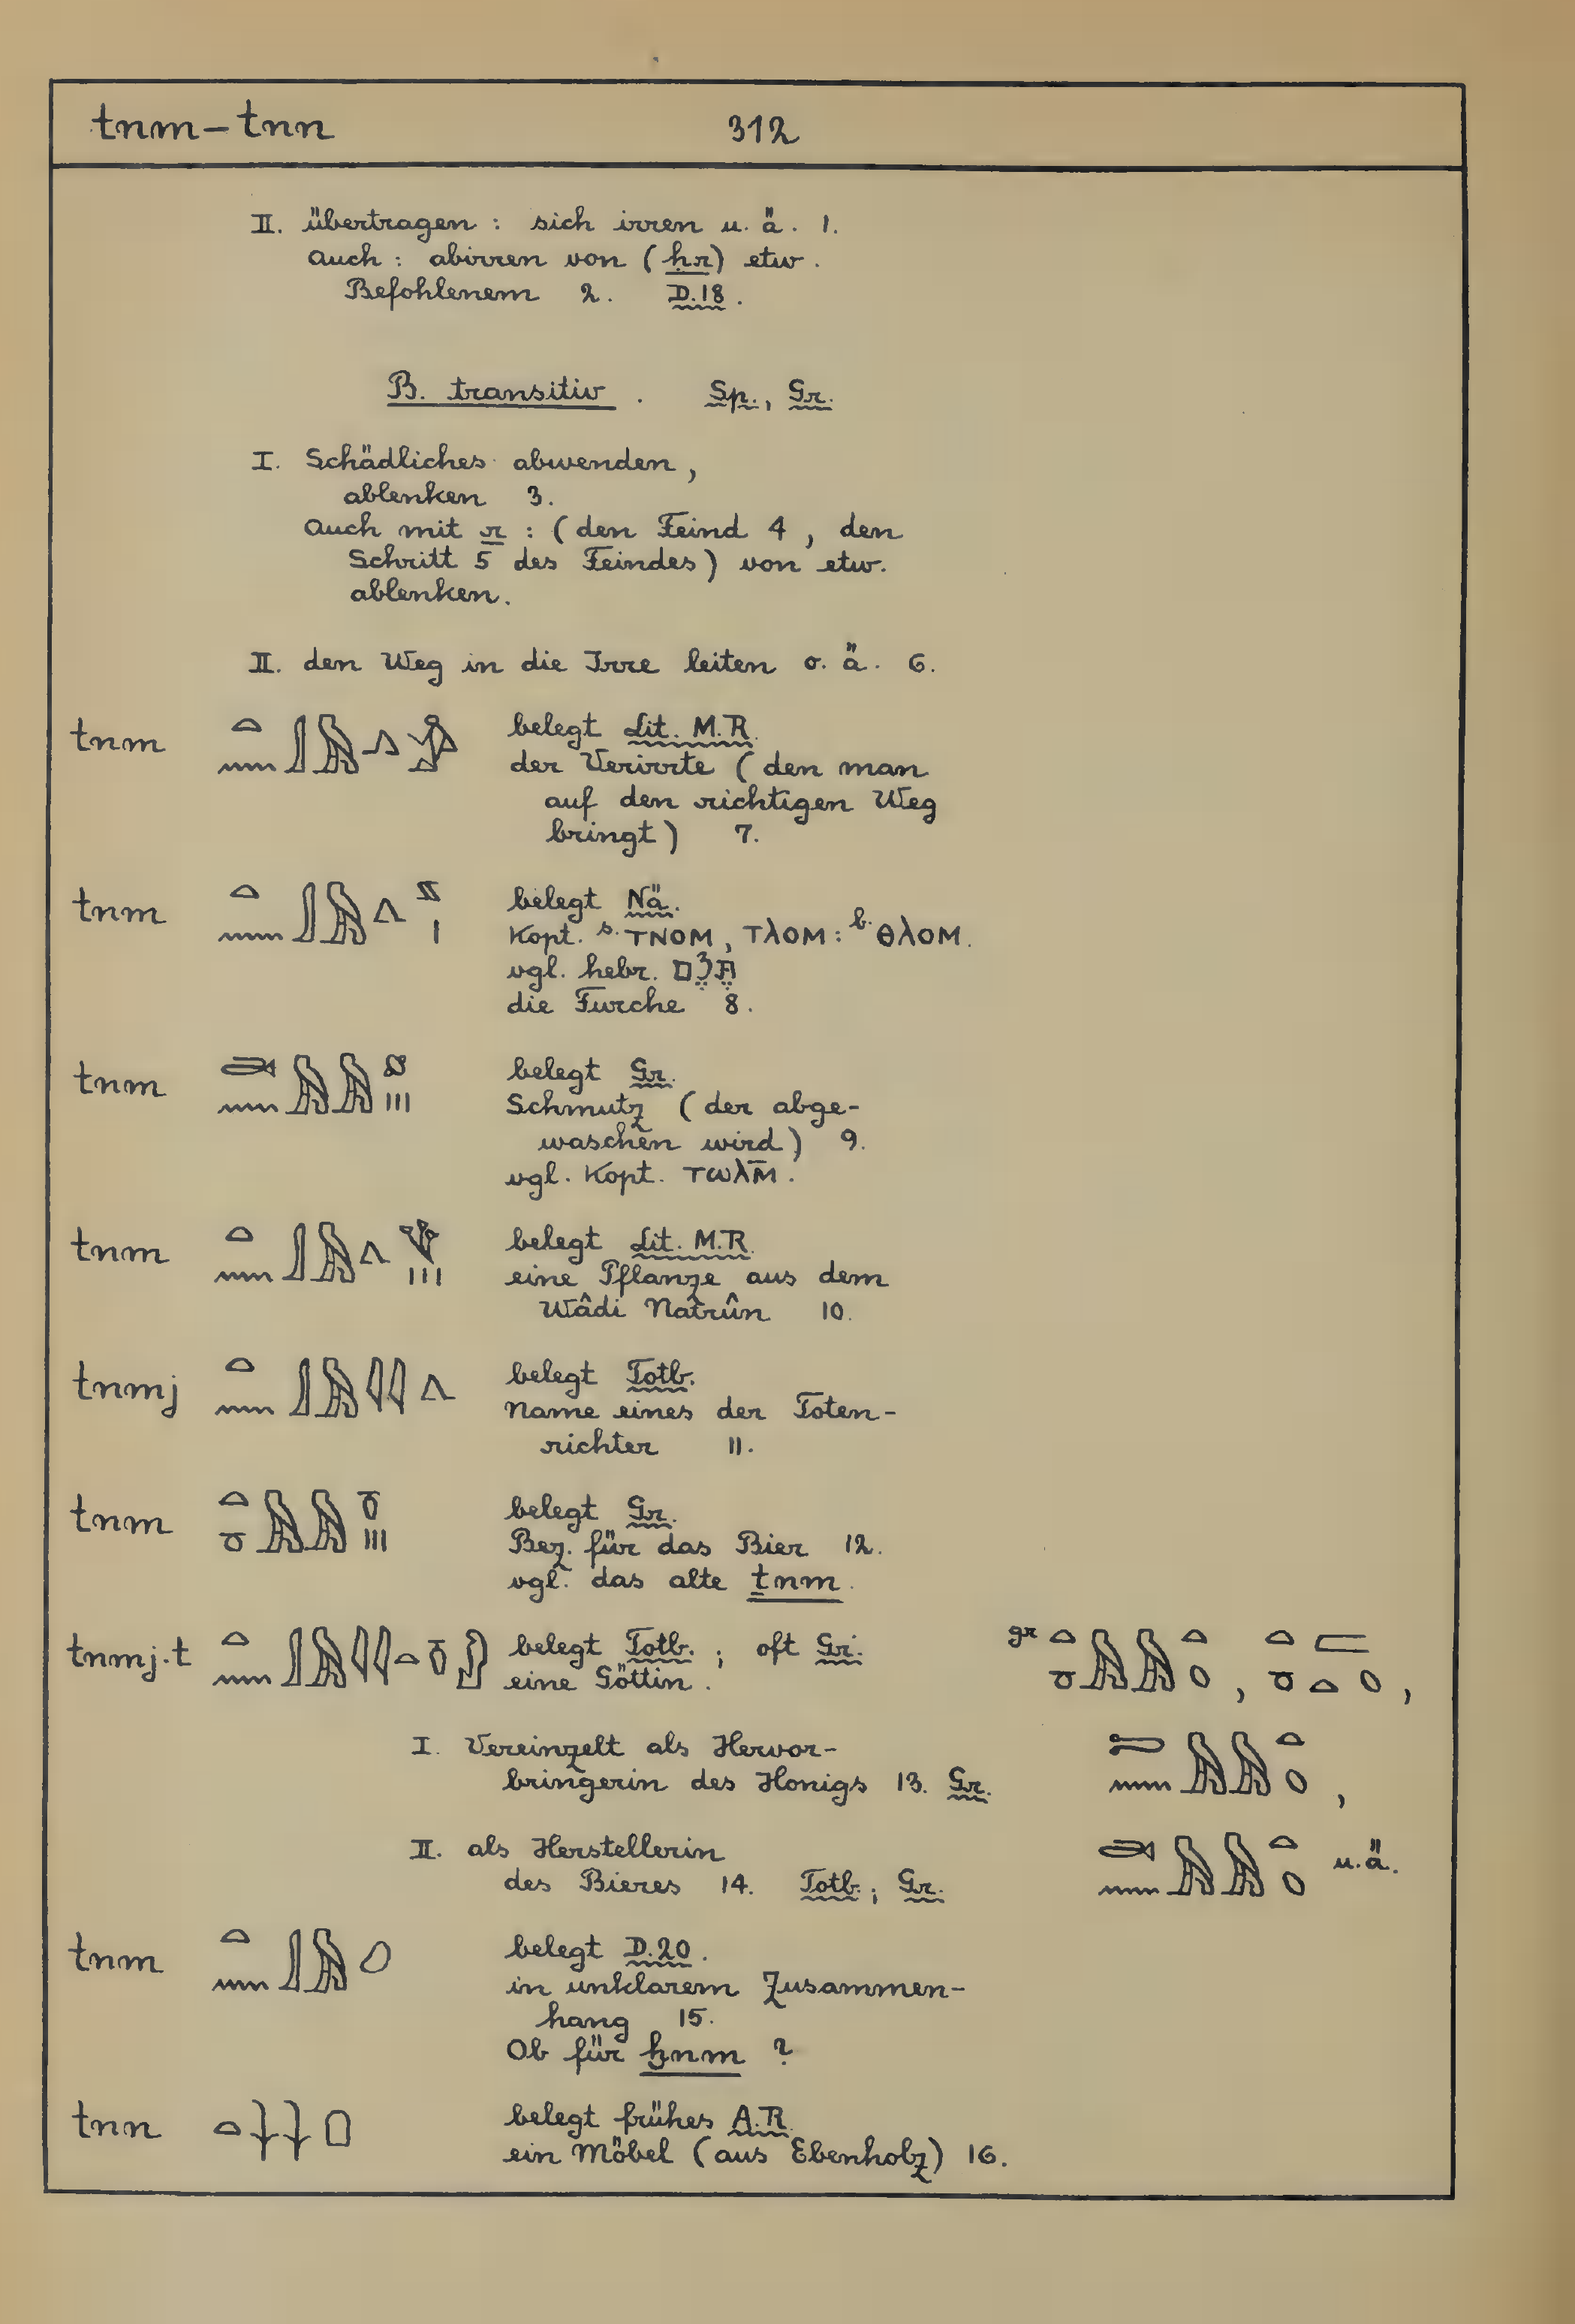 tnm – tnn 312
II. übertragen : sich irren u. ä. 1.
auch : abirren von (ḥr) etw.
Befohlenem 2. D.18.
B. transitiv. Sp., Gr.
I. Schädliches abwenden,
ablenken 3.
auch mit r : (den Feind 4, den
Schritt 5 des Feindes) von etw.
ablenken.
II. den Weg in die Irre leiten o. ä. 6.
tnm belegt Lit. M.R.
der Verirrte (den man
auf den richtigen Weg
bringt) 7.
tnm belegt Nä.
Kopt. s. ⲦⲚⲞⲘ, ⲦⲖⲞⲘ : b. ⲐⲖⲞⲘ.
vgl. hebr. תֶּלֶם
die Furche 8.
tnm belegt Gr.
Schmutz (der abge-
waschen wird) 9.
vgl. Kopt. ⲧⲱⲗⲙ̄.
tnm belegt Lit. M.R.
eine Pflanze aus dem
Wâdi Natrûn 10.
tnmj belegt Totb.
Name eines der Toten-
richter 11.
tnm belegt Gr.
Bez. für das Bier 12.
vgl. das alte ṯnm.
tnmj.t belegt Totb. ; oft Gr. gr
eine Göttin.
I. Vereinzelt als Hervor-
bringerin des Honigs 13. Gr.
II. als Herstellerin
des Bieres 14. Totb. ; Gr. u. ä.
tnm belegt D.20.
in unklarem Zusammen-
hang 15.
Ob für ẖnm ?
tnn belegt frühes A.R.
ein Möbel (aus Ebenholz) 16.